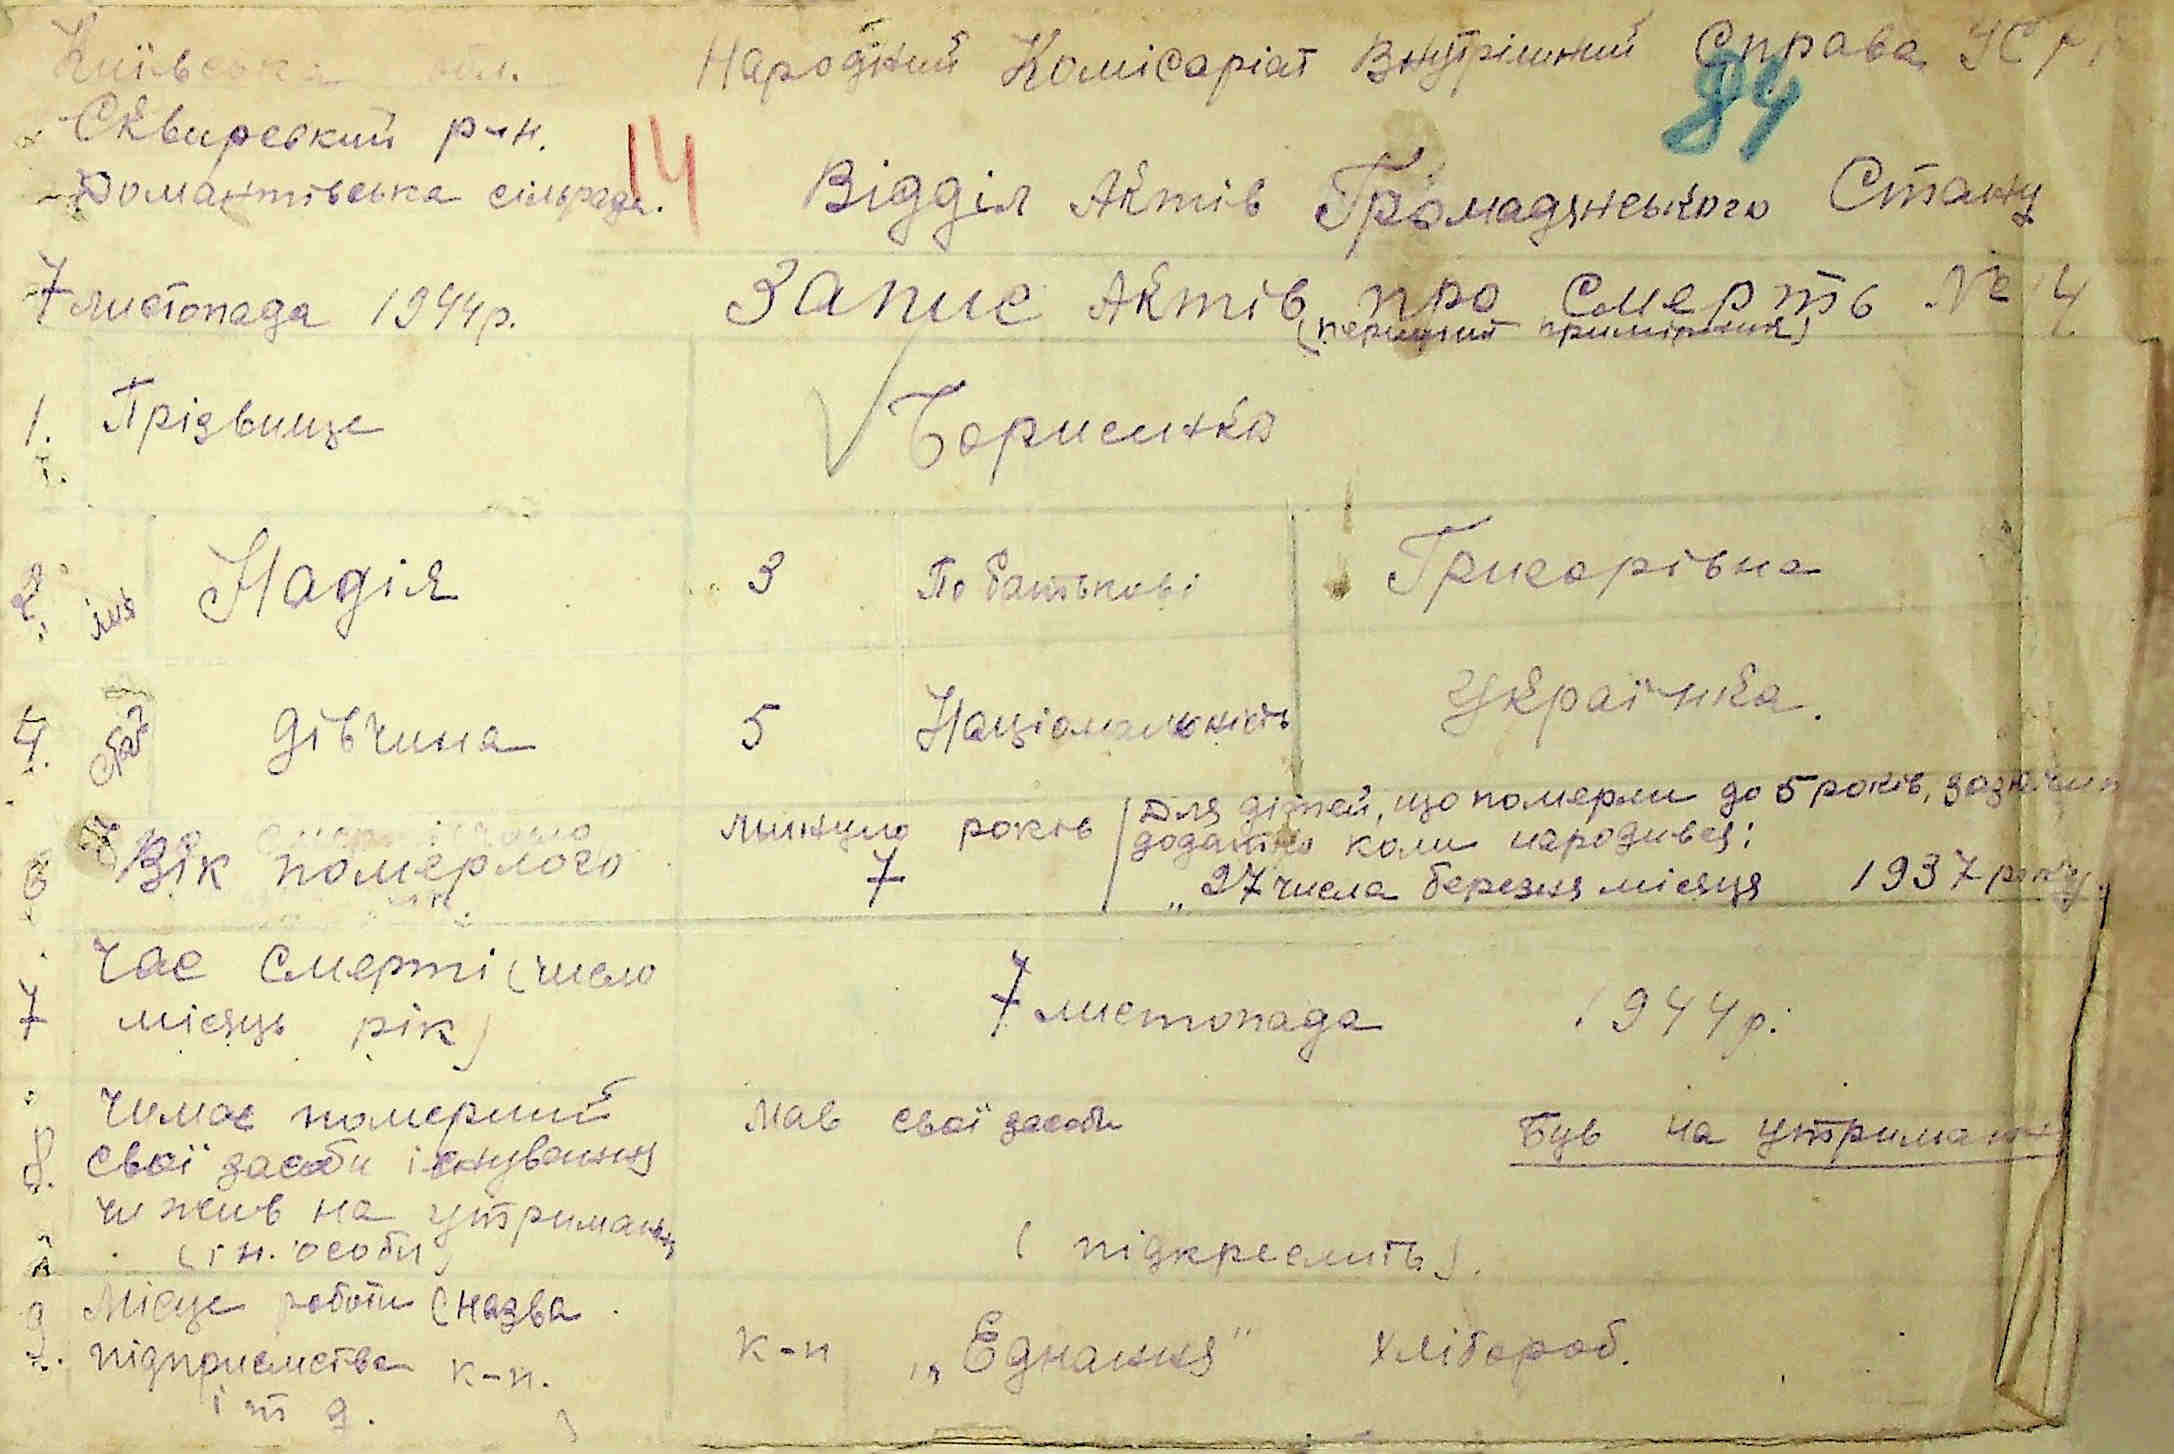 Київська обл.
Народний Комісаріат Внутрішний Справа УС
84
Сквирський р-н.
14
Домантівська сільрада.
Відділ Актів Громадянського Стану
7 листопада 1944 р.
Запис Актів про Смерть № 4
(перший примірник)
1. Прізвище
Борисенко
2. імя Надія 3 По батькові Григорівна
4. стать дівчина 5 Національність Українка.
6 Вік померлого
минуло років
7
Для дітей, що померли до 5 років, зазначити
додатно коли народився:
„27 числа березня місяця 1937 року.
7 Час Смерті (число
місяць рік)
7 листопада 1944 р.
8. Чи мав померший
свої засоби існування
чи жив на утриманн
(ін. особи)
Мав свої засоби
Був на утриманн
(підкреслить).
9. Місце роботи (назва
підприємства к-п.
і т д. )
к-п „Єднання" Хлібороб.